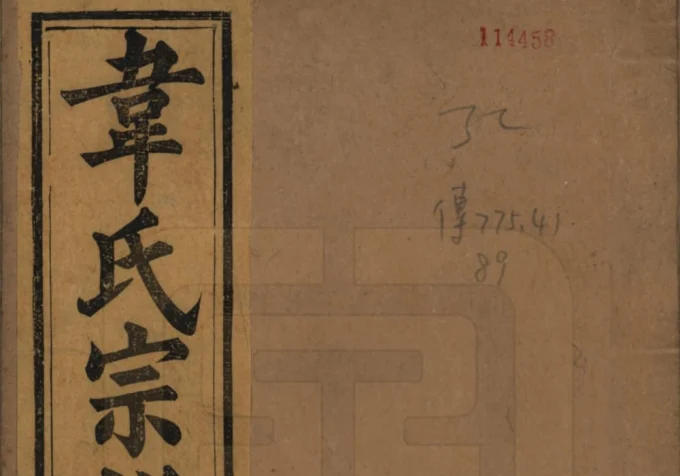 韋氏宗
114458
傳775.41
89